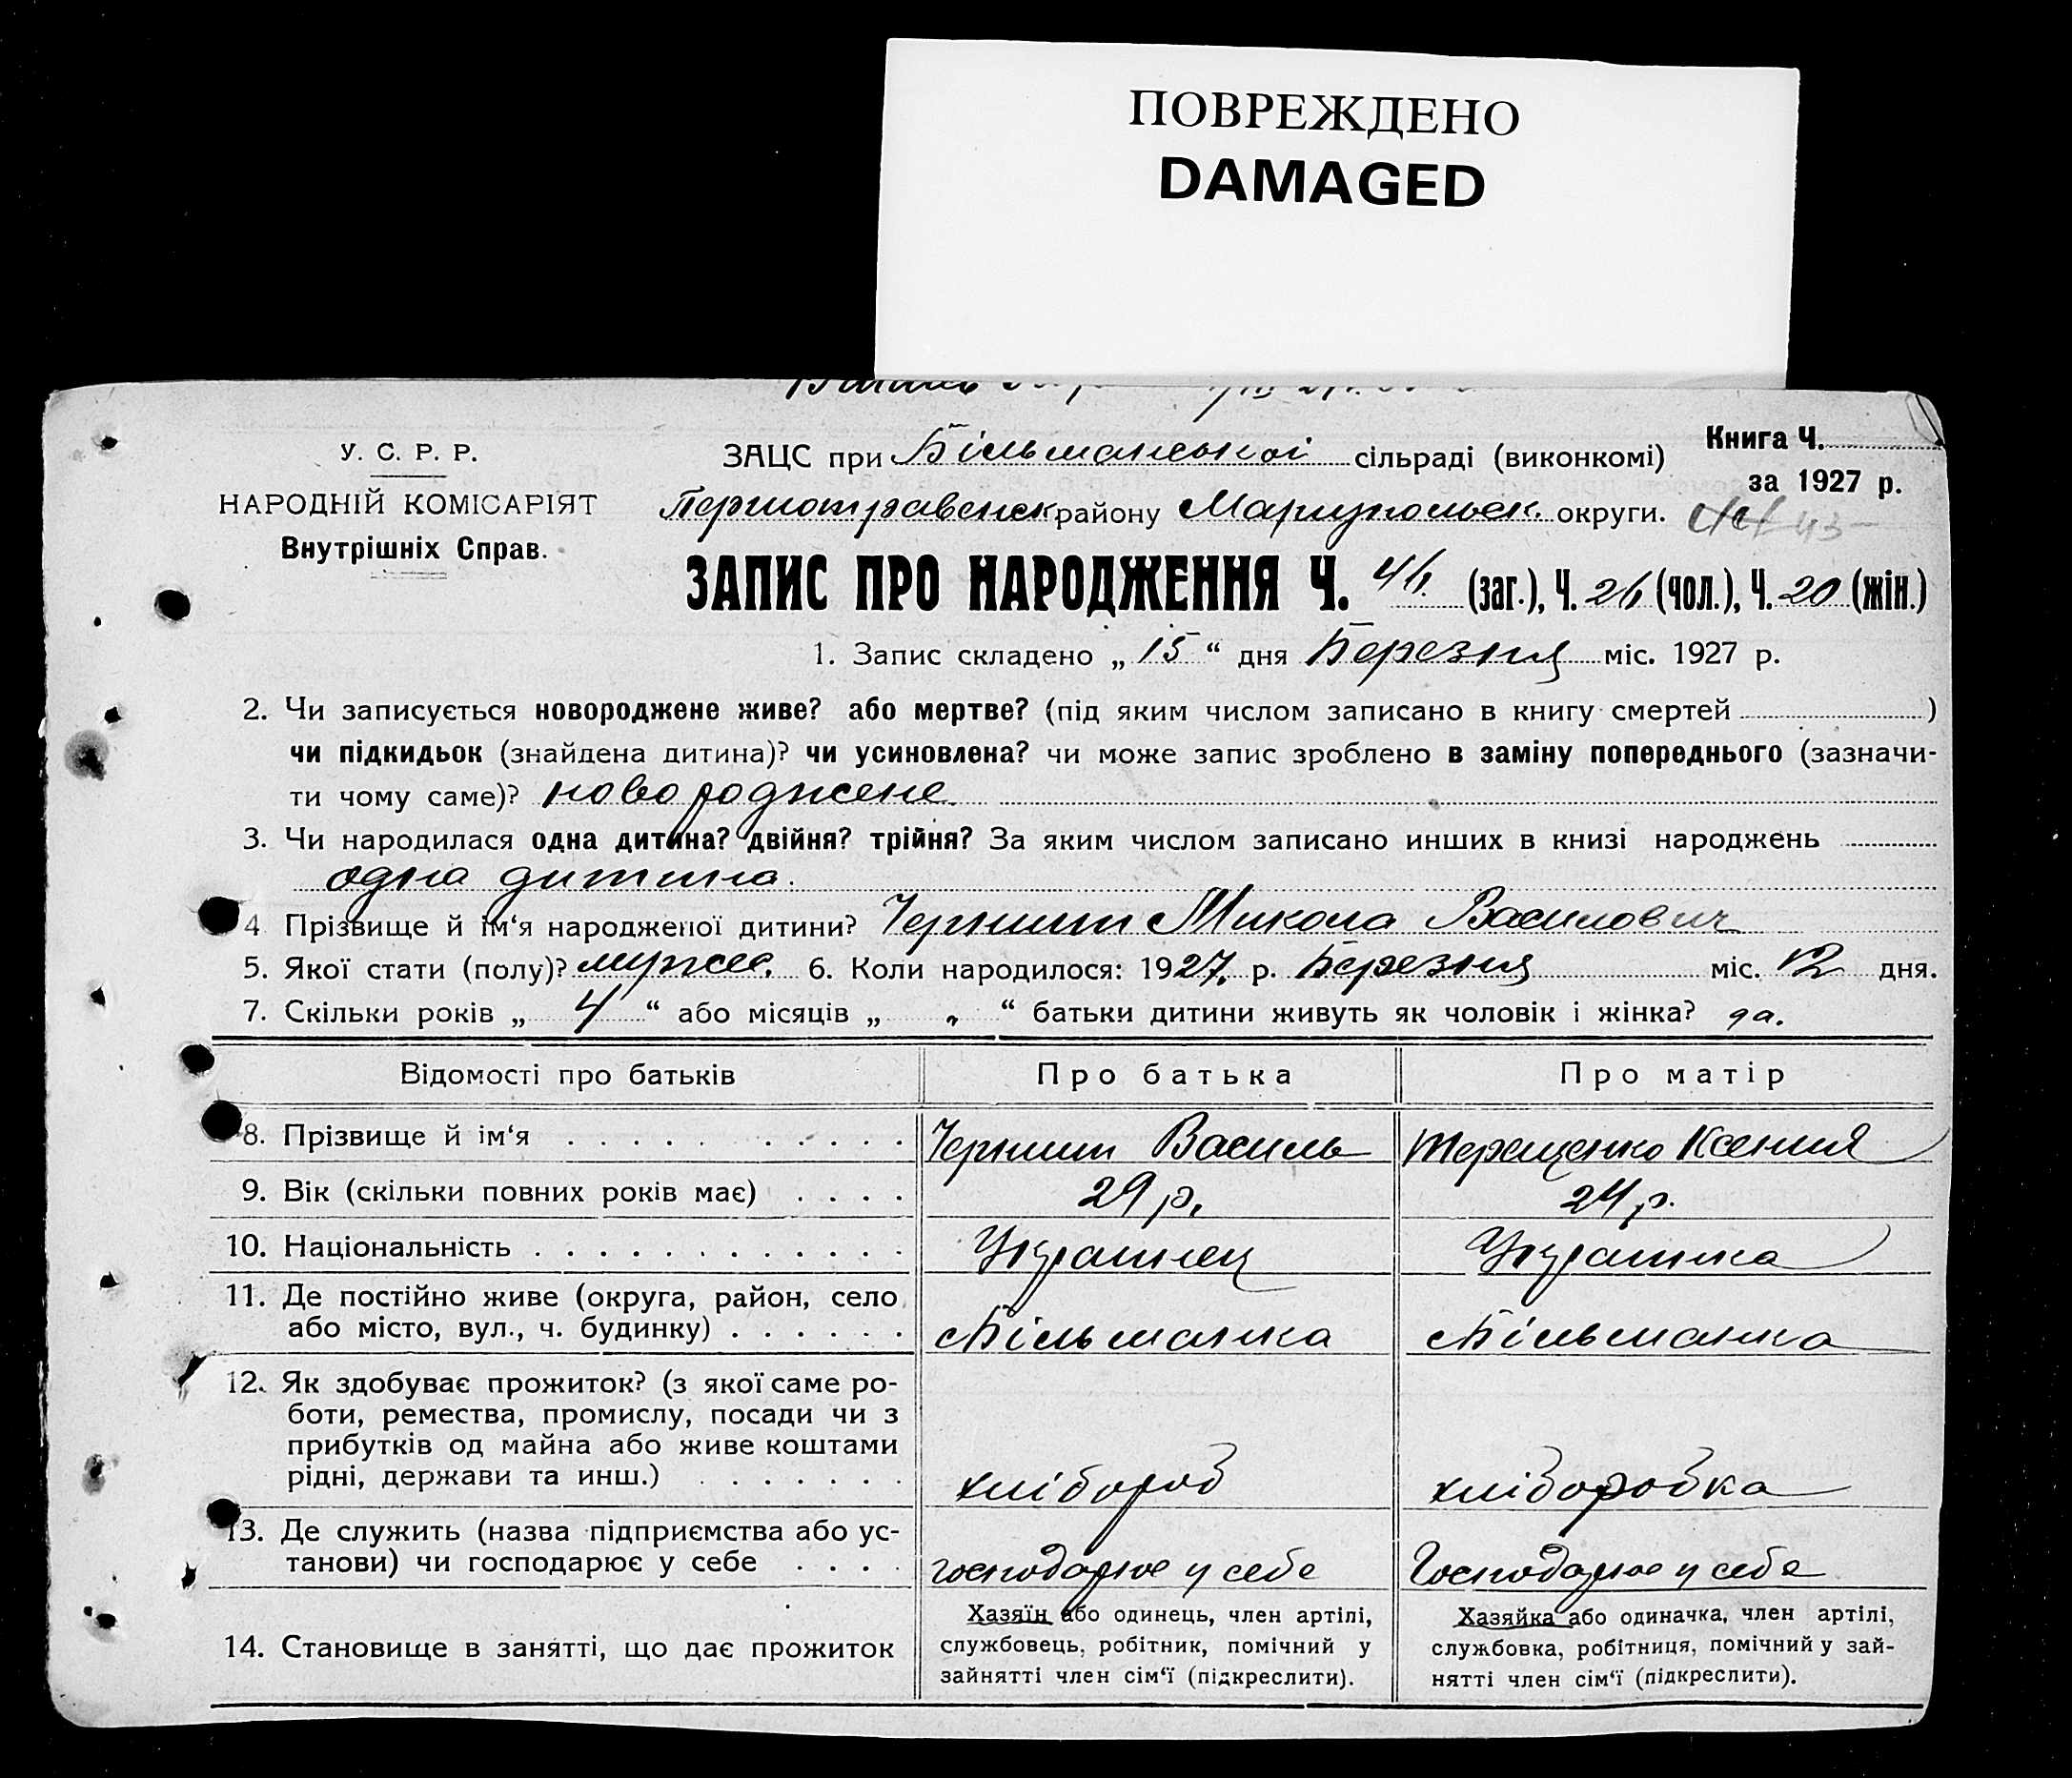 ПОВРЕЖДЕНО
DAMAGED
У. С. Р. Р.
НАРОДНІЙ КОМІСАРІЯТ
Внутрішніх Справ.
ЗАЦС при Більманській сільраді (виконкомі)
Книга Ч.
за 1927 р.
Першотравенськ району Маріупольск. округи.
43
ЗАПИС ПРО НАРОДЖЕННЯ Ч. 46. (заг.), Ч. 26 (чол.), Ч. 20 (жін.)
1. Запис складено „ 15 “ дня Березня міс. 1927 р.
2. Чи записується новороджене живе? або мертве? (під яким числом записано в книгу смертей )
чи підкидьок (знайдена дитина)? чи усиновлена? чи може запис зроблено в заміну попереднього (зазначи-
ти чому саме)? новороджене.
3. Чи народилася одна дитина? двійня? трійня? За яким числом записано инших в книзі народжень
одна дитина.
4 Прізвище й ім‘я народженої дитини? Микола Василович
5. Якої стати (полу)? мужес. 6. Коли народилося: 1927. р. Березня міс. 12 дня.
7. Скільки років „ 4 “ або місяців „ „ “ батьки дитини живуть як чоловік і жінка? да.
Відомості про батьків Про батька Про матір
8. Прізвище й ім‘я . . . . . . . . . . . Василь Терещенко Ксения
9. Вік (скільки повних років має) . . . . 29 р. 24 р.
10. Національність . . . . . . . . . . . . . Украинец Украинка
11. Де постійно живе (округа, район, село
або місто, вул., ч. будинку) . . . . . . Більманка Більманка
12. Як здобуває прожиток? (з якої саме ро-
боти, ремества, промислу, посади чи з
прибутків од майна або живе коштами
рідні, держави та инш.) . . . . . . . хлібороб хліборобка
13. Де служить (назва підприємства або ус-
танови) чи господарює у себе . . . . господарює у себе Господарює у себе
14. Становище в занятті, що дає прожиток
Хазяїн або одинець, член артілі,
службовець, робітник, помічний у
зайнятті член сім‘ї (підкреслити).
Хазяйка або одиначка, член артілі,
службовка, робітниця, помічний у зай-
нятті член сім‘ї (підкреслити).